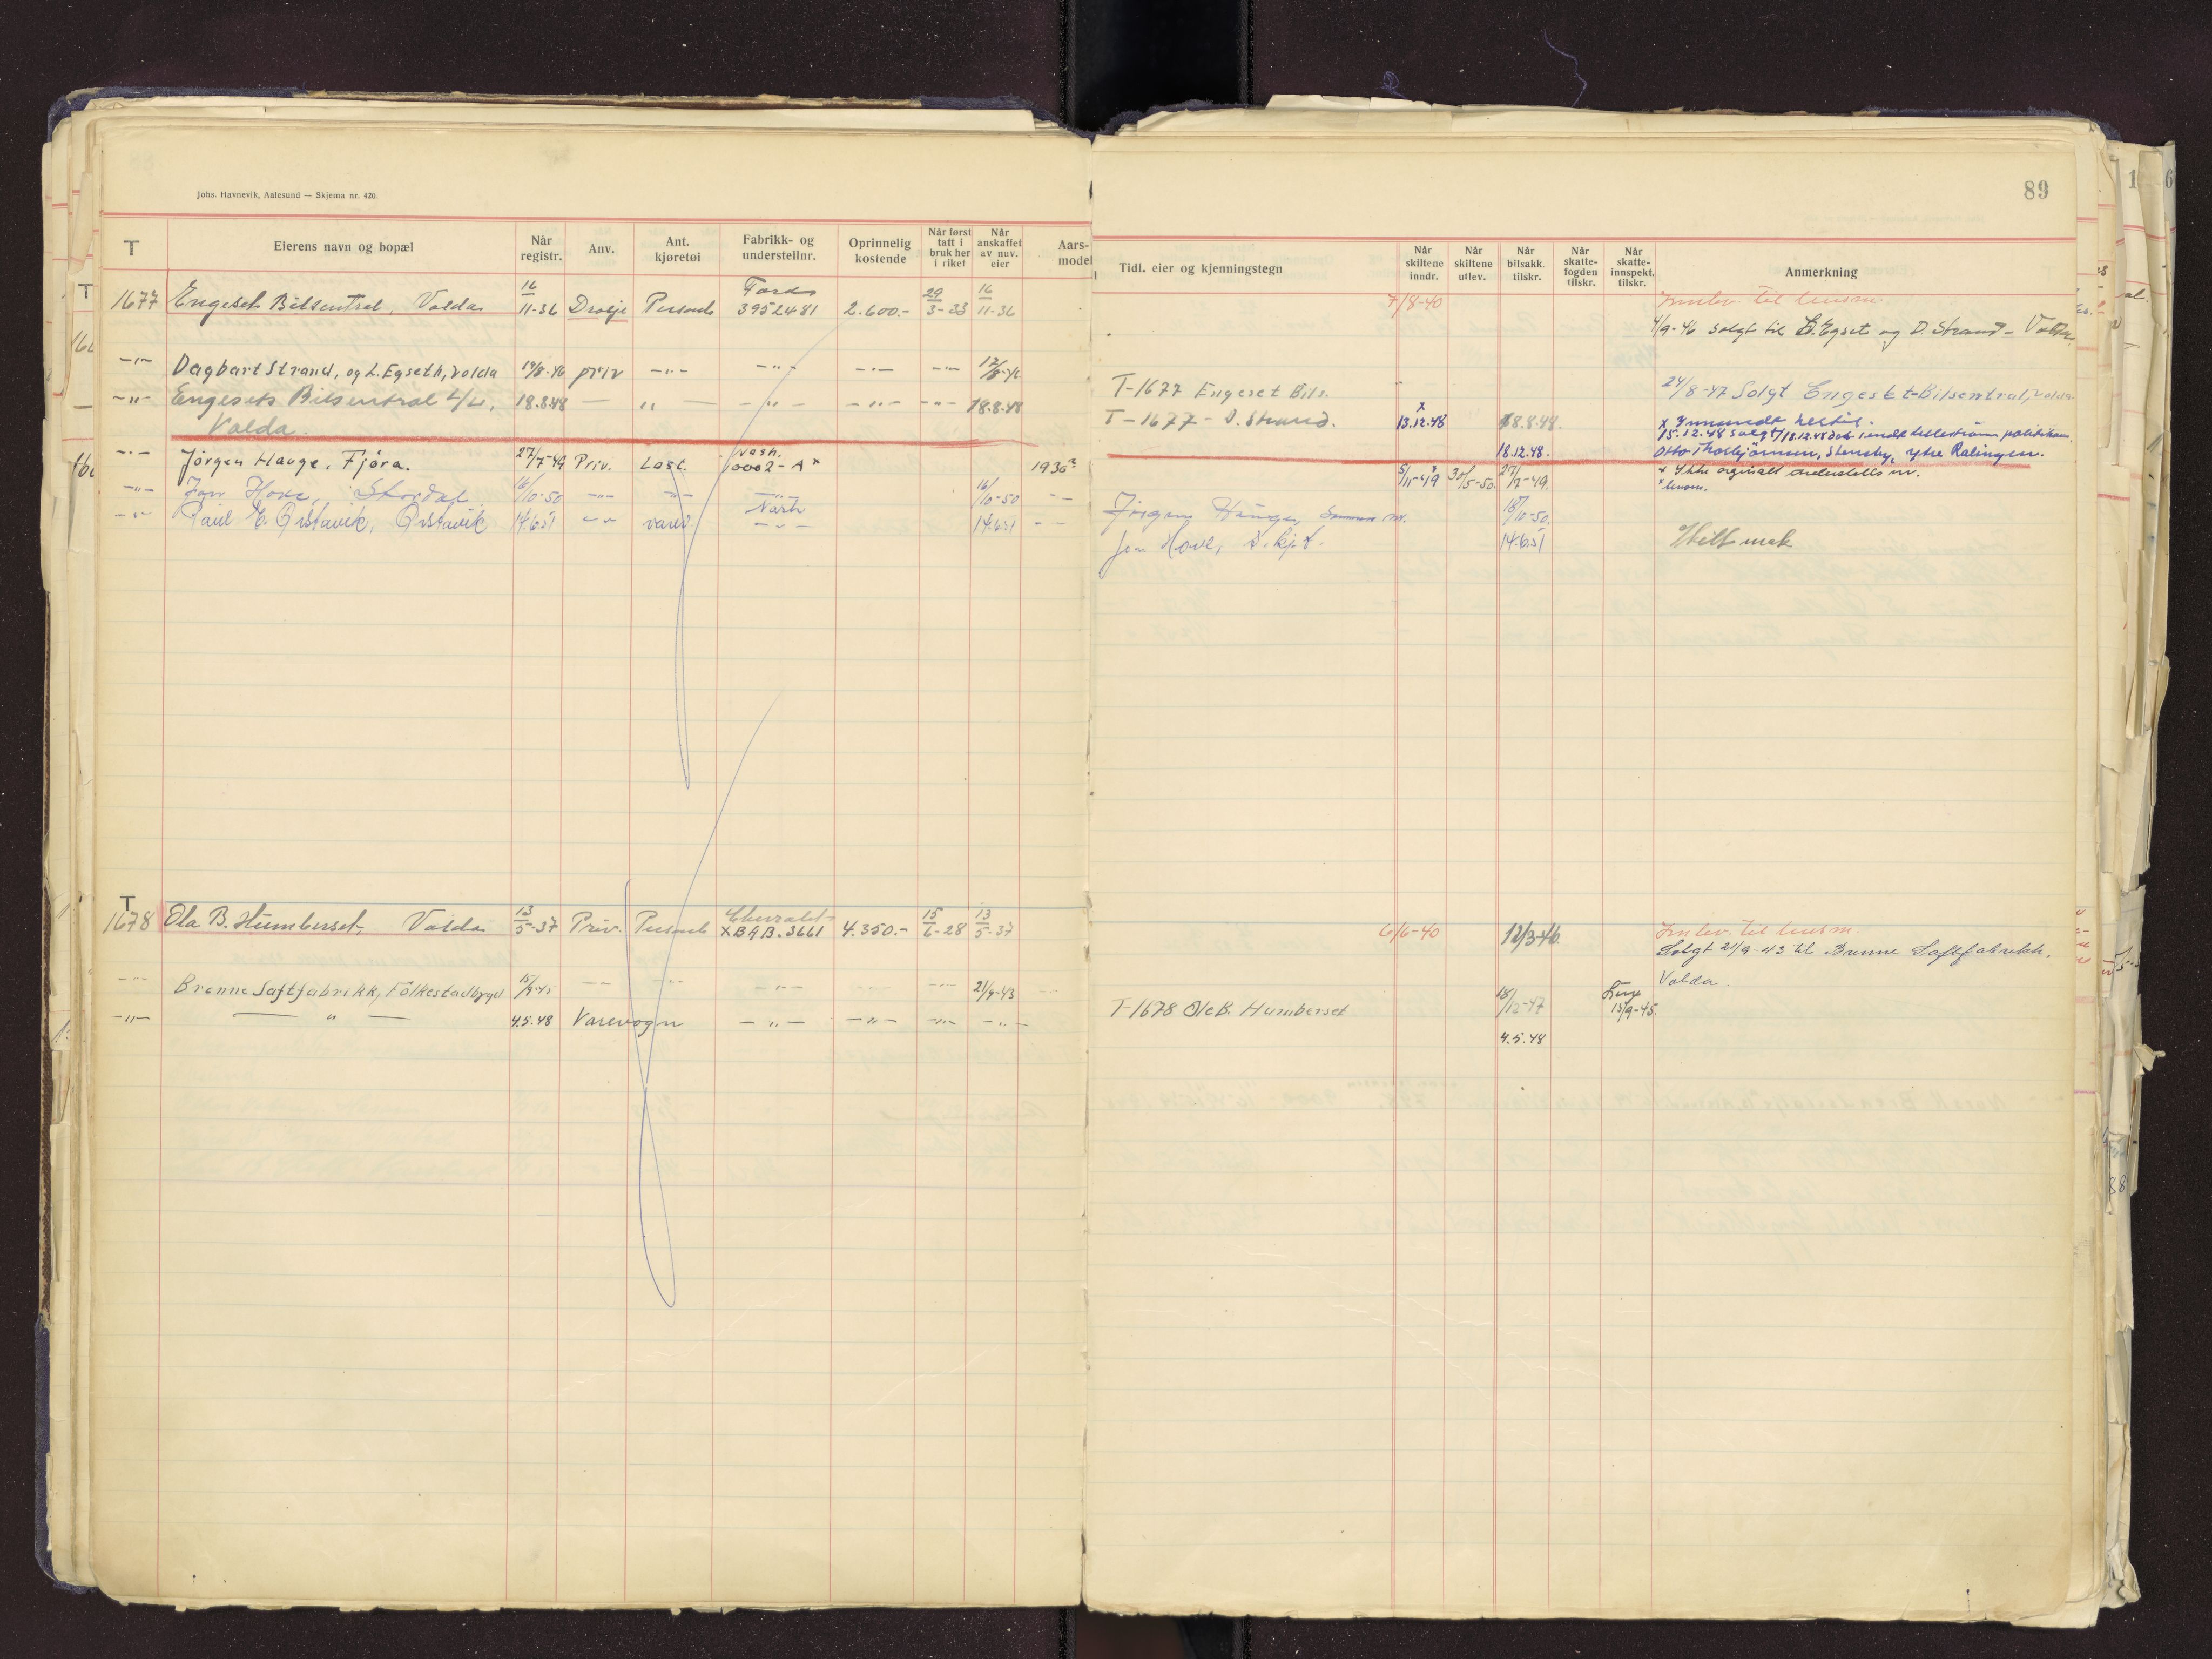 Johs. Havnevik, Aalesund — Skjema nr. 420.
T
Eierens navn og bopæl
Når registr.
Anv.
Ant. kjøretøi
Fabrikk- og understellnr.
Oprinnelig kostende
Når først tatt i bruk her i riket
Når anskaffet av nuv. eier
Aars- model
1677 Engeset Bilsentral, Volda 16/11-36 Drosje Personb Ford 3952481 2.600.- 29/3-33 16/11-36
-"- Dagbart Strand, og L. Egseth, Volda 19/8-46 priv -"- -"- -"- -"- 12/8-46
-"- Engesets Bilsentral L/L, 18.8.48 — " — -"- -"- -"- 18.8.48
Volda.
-"- Jørgen Hauge, Fjøra. 27/7-49 Priv. Last. Nash. 10002-A x 1930?
-"- Jon Hove, 16/10-50 -"- -"- -"- 16/10-50 - -
-"- Paul E. Ørstavik, Ørstavik 14.6.51 -"- vareb Nash -"- 14.6.51 - -
T
1678 Ola B. Humberset, Volda 13/5-37 Priv. Personb Chevrolet XB9B.3661 4.350.- 15/6-28 13/5-37
-"- Brenne Saftfabrikk, Folkestadbygd 15/9-45 -"- -"- -"- -"- -"- 21/9-43
-"- — " — 4.5.48 Varevogn -"- -"- -"- -"-
89
Tidl. eier og kjenningstegn
Når skiltene inndr.
Når skiltene utlev.
Når bilsakk. tilskr.
Når skatte- fogden tilskr.
Når skatte- innspekt. tilskr.
Anmerkning
7/8-40 Innlev. til lensm.
4/9-46 solgt til L. Egset og D. Strand - Volda
T-1677 Engeset Bils. 24/8-47 Solgt Engeset-Bilsentral, Volda
T-1677 - D. Strand. x 13.12.48 18.8.48. x Innsendt
15.12.48 solgt politikam.
18.12.48. Otto Thorbjörnsen, Stensby, ytre Rælingen.
5/11-49 30/5-50. 27/7-49. x Ikke orginalt understells nr.
x lensm.
Jørgen Hauge, 18/10-50.
Jon Hove, 14.6.51
6/6-40 12/3-46. Innlev. til lensm.
Solgt 21/9-43 til Brenne Saftfabrikk.
Volda.
T-1678 Ole B. Humberset 18/12-47 15/9-45.
4.5.48